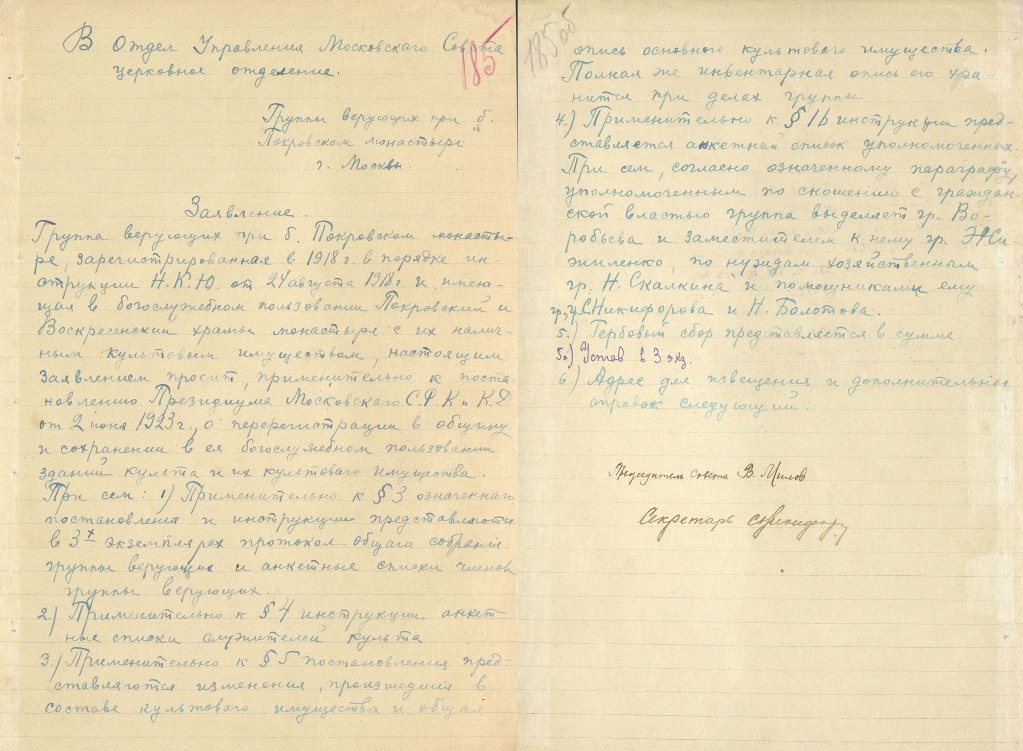 185
В Отдел Управления Московского Совета
церковное отделение.
Группы верующих при б.
Покровском монастыре
г. Москвы
Заявление.
Группа верующих при б. Покровском монасты-
ре, зарегистрированная в 1918 г. в порядке ин-
струкции Н.К.Ю. от 24 августа 1918 г. и имею-
щая в богослужебном пользовании Покровский и
Воскресенский храмы монастыря с их налич-
ным культовым имуществом, настоящим
заявлением просит, применительно к поста-
новлению Президиума Московского С.Р.К и К.Д
от 2 июня 1923 г., о перерегистрации в общину
и сохранении в ея богослужебном пользовании
зданий культа и их культоваго имущества.
При сем: 1) Применительно к § 3 означеннаго
постановления и инструкции представляются
в 3х экземплярах протокол общаго собрания
группы верующих и анкетные списки членов
группы верующих.
2.) Применительно к § 4 инструкции анкет-
ные списки служителей культа
3.) Применительно к § 5 постановления пред-
ставляются изменения, произшедшия в
составе культоваго имущества и общая
185 об
опись основного культоваго имущества.
Полная же инвентарная опись его хра-
нится при делах группы
4.) Применительно к § 16 инструкции пред-
ставляется анкетный список уполномоченных.
При сем, согласно означенному параграфу,
уполномоченным по сношению с граждан-
ской властью группа выделяет гр. Во-
робьева и заместителем к нему гр. Жи
жиленко, по нуждам хозяйственным
гр. Н. Скалкина и помощниками ему
гр., гр. С. Никифорова и Н. Болотова.
5.) Гербовый сбор представляется в сумме
5а) Устав в 3 экз.
6.) Адрес для извещения и дополнительной
справок следующий:
Председатель совета В.
Секретарь С. Никифоров